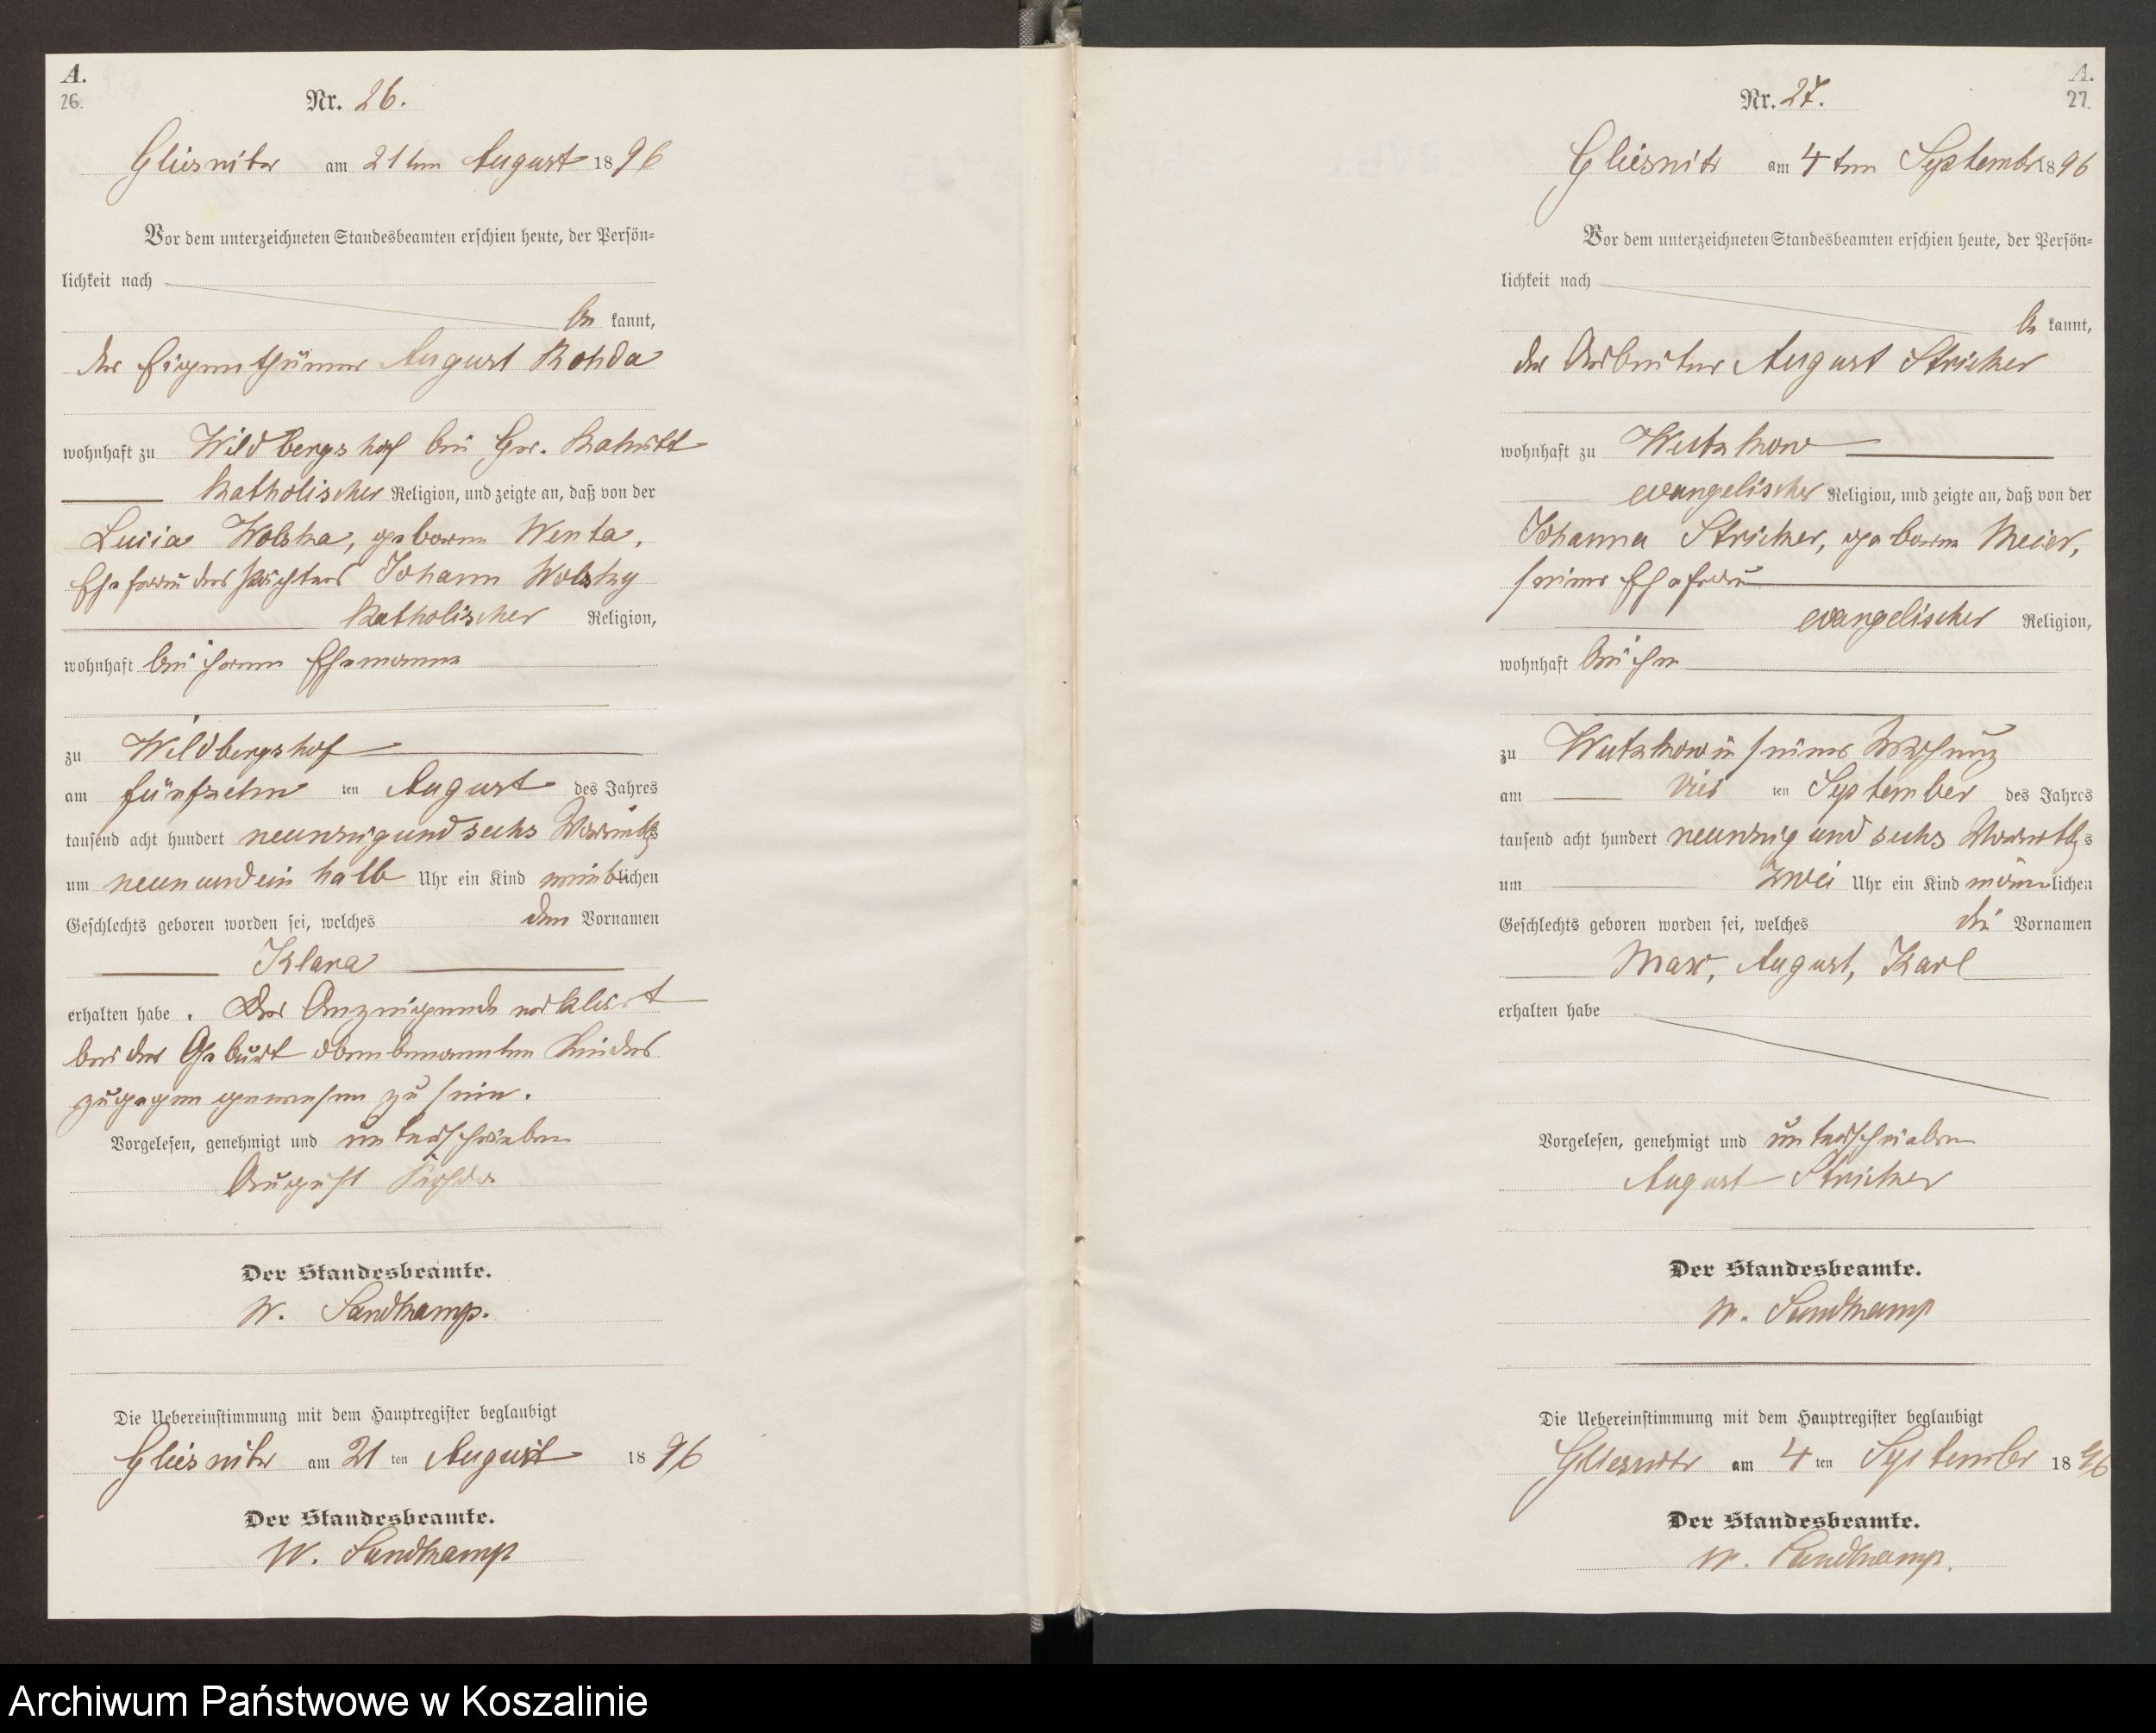 A.
26.
Nr. 26.
Gliesnitz am 21ten August 1896
Vor dem unterzeichneten Standesbeamten erschien heute, der Persön=
lichkeit nach
be kannt,
der Eigenthümer August Rohda
wohnhaft zu Wildbergshof bei Gr.
katholischer Religion, und zeigte an, daß von der
Lucia Wolska, geborne Wenta,
Ehefrau des Pächters Johann Wolsky
katholischer Religion,
wohnhaft bei ihrem Ehemanne
zu Wildbergshof
am fünfzehn ten August des Jahres
tausend acht hundert neunzig und sechs Vormittags
um neun und ein halb Uhr ein Kind weiblichen
Geschlechts geboren worden sei, welches den Vornamen
Klara
erhalten habe. Der Anzeigende erklärt
bei der Geburt obenbenannten Kindes
zugegen gewesen zu sein.
Vorgelesen, genehmigt und unterschrieben
August Rohda
Der Standesbeamte.
W. Sandkamp.
Die Uebereinstimmung mit dem Hauptregister beglaubigt
Gliesnitz am 21 ten August 1896
Der Standesbeamte.
W. Sandkamp
A.
27.
Nr. 27.
Gliesnitz am 4ten September 1896
Vor dem unterzeichneten Standesbeamten erschien heute, der Persön=
lichkeit nach
be kannt,
der Arbeiter August Stricker
wohnhaft zu Wutzkow
evangelischer Religion, und zeigte an, daß von der
Johanna Stricker, geborne Meier,
seiner Ehefrau
evangelischer Religion,
wohnhaft bei ihm
zu Wutzkow in seiner Wohnung
am vier ten September des Jahres
tausend acht hundert neunzig und sechs Vormittags
um zwei Uhr ein Kind männlichen
Geschlechts geboren worden sei, welches die Vornamen
Max, August, Karl
erhalten habe
Vorgelesen, genehmigt und unterschrieben
August Stricker
Der Standesbeamte.
W. Sandkamp
Die Uebereinstimmung mit dem Hauptregister beglaubigt
Gliesnitz am 4 ten September 1896
Der Standesbeamte.
W. Sandkamp.
Archiwum Państwowe w Koszalinie